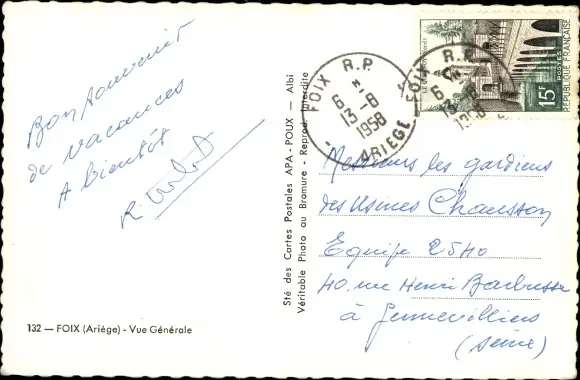 Bon souvenir
de vacances
A bientôt
132 — FOIX (Ariège) - Vue Générale
Sté des Cartes Postales APA - POUX — Albi
Véritable Photo au Bromure - Reprod. Interdite
FOIX R.P.
6 H
13-8
1958
ARIEGE
FOIX R.P.
6 H
13-8
1958
15F
POSTES
REPUBLIQUE FRANÇAISE
Messieurs les gardiens
des Usines Chausson
Equipe 25H0
40, rue Henri Barbusse
à Gennevilliers
(Seine)